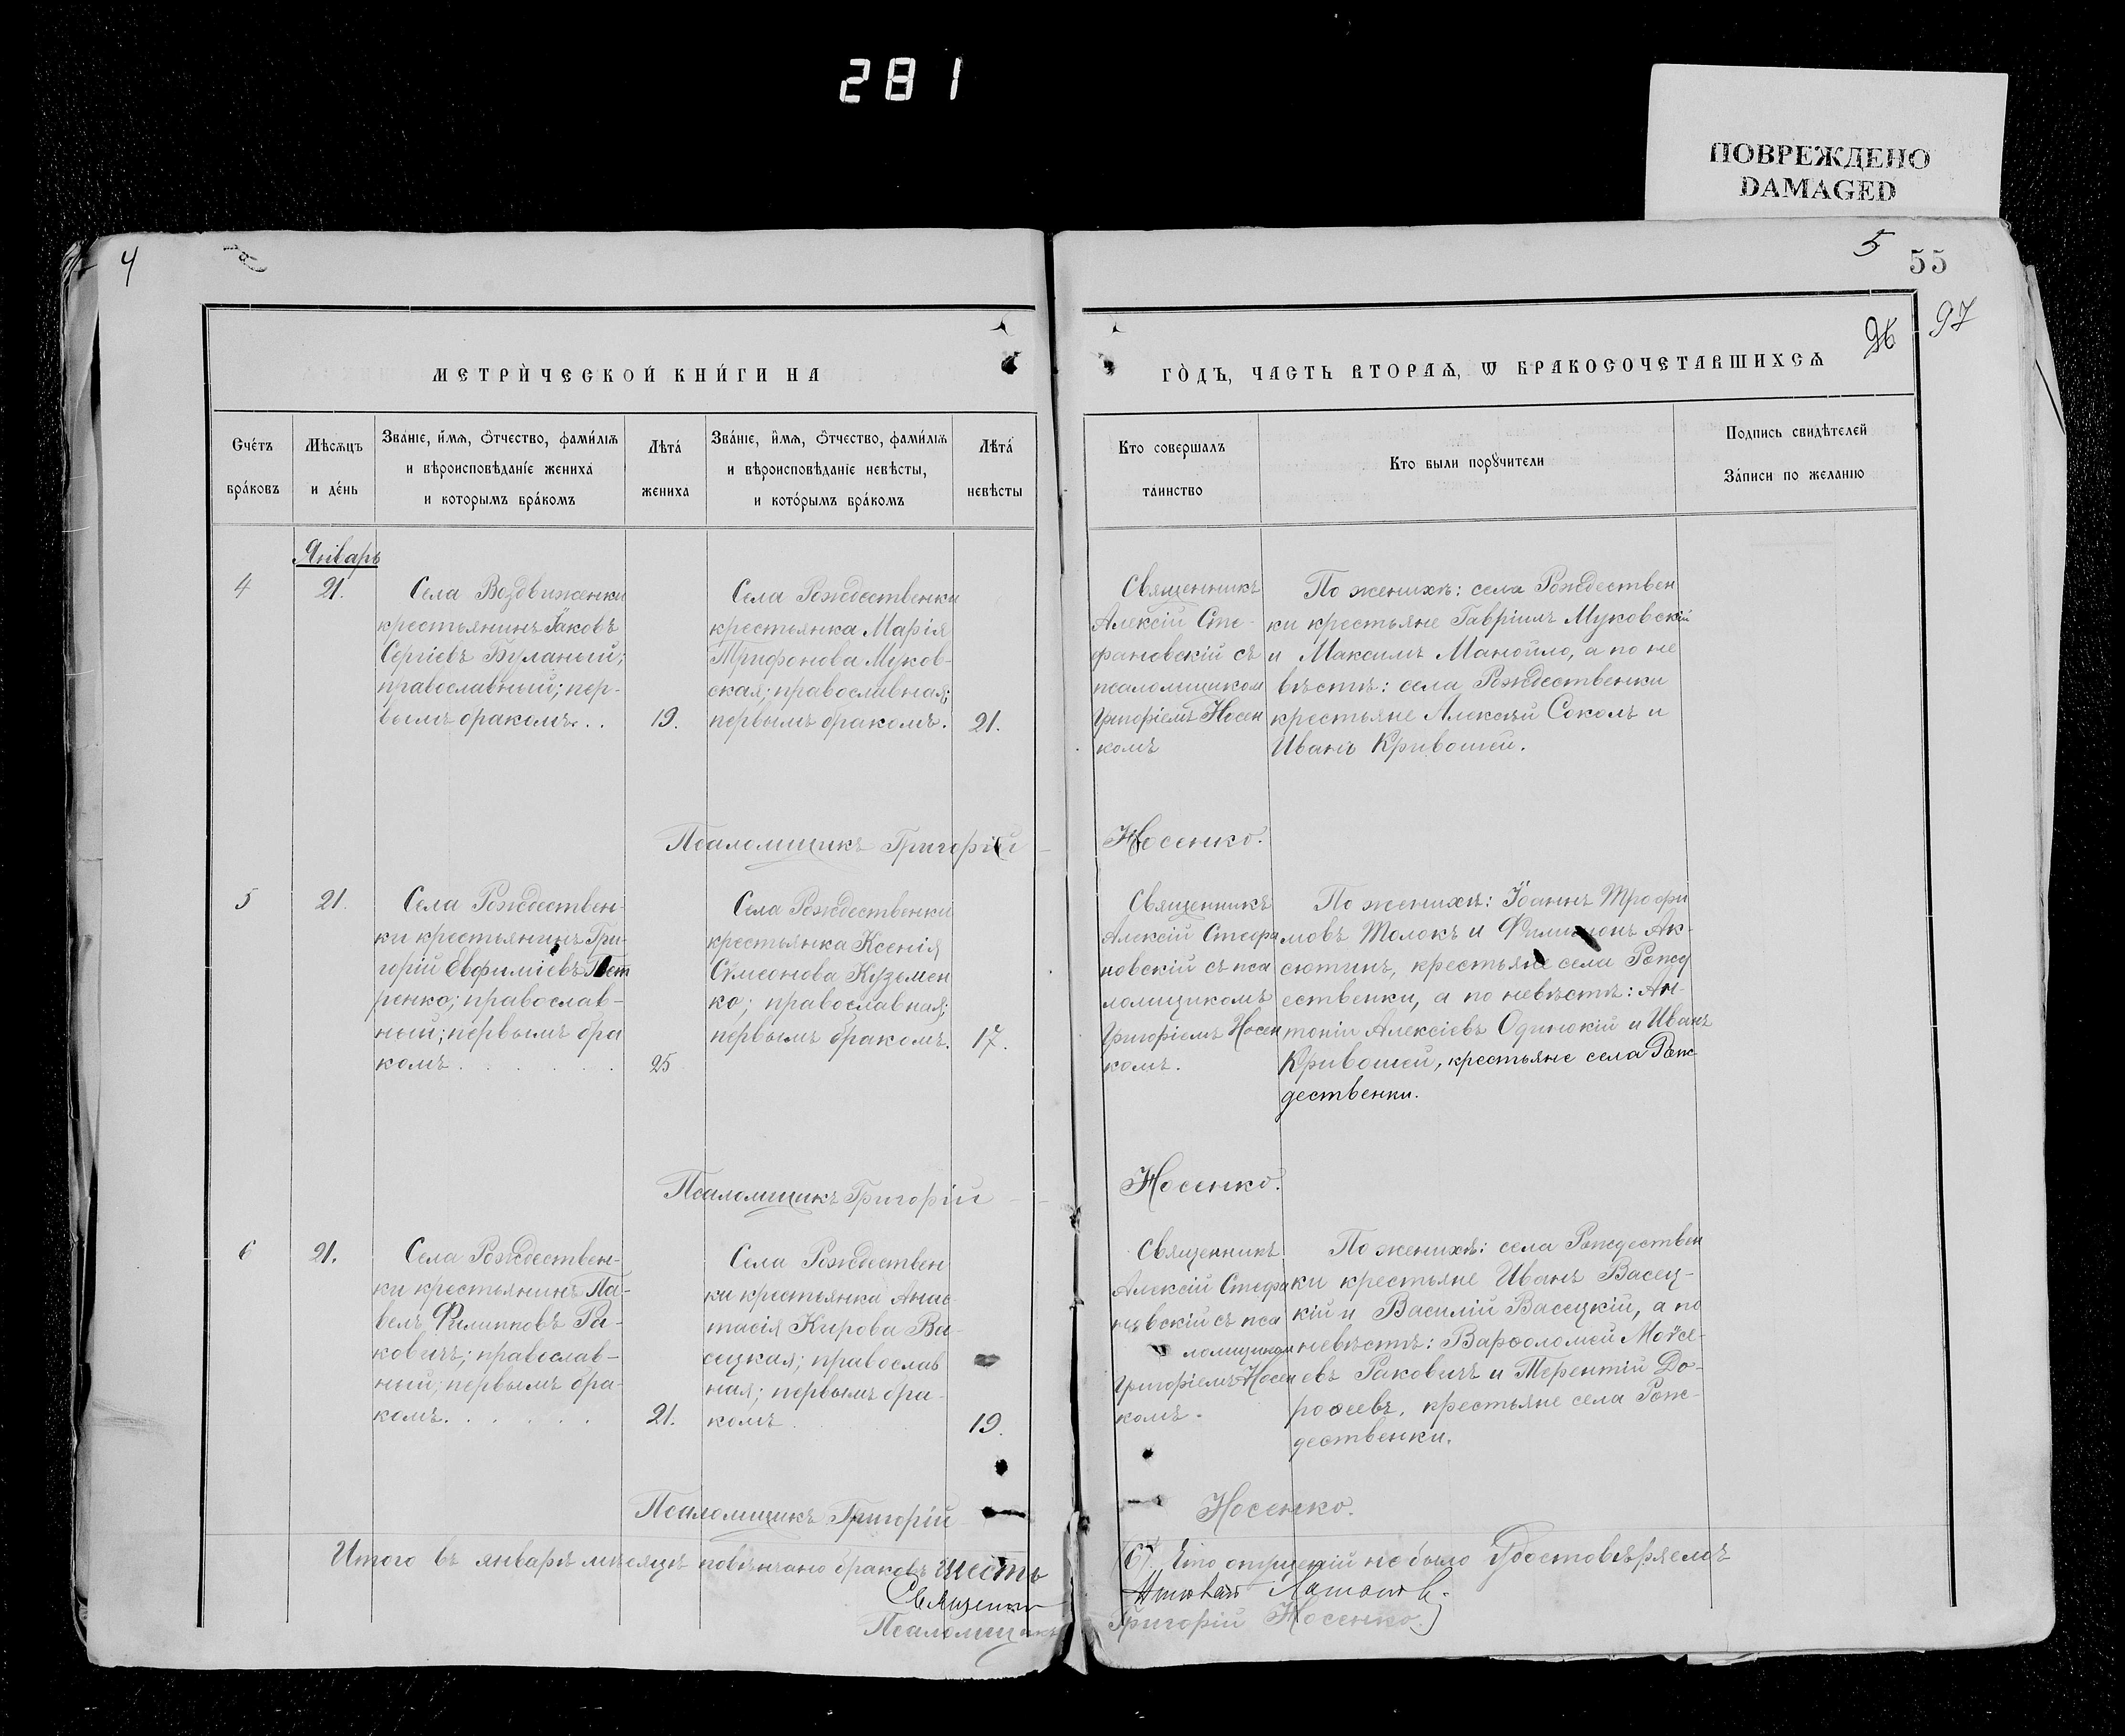 281
ПОВРЕЖДЕНО
DAMAGED
4
5
55
97
МЕТРИ́ЧЕСКОЙ КНИ́ГИ НА
ГО́ДЪ, ЧАСТЬ ВТОРАѦ, Ѡ БРАКОСОЧЕТАВШИХСѦ
Сче́тъ бра́ковъ
Мѣсѧцъ и де́нь
Зва́нїе, и́мѧ, ѻ҆́тчество, фами́лїѧ
и вѣроисповѣданїе жениха̀
и которымъ бра́комъ
Лѣта̀ жениха
Зва́нїе, и́мѧ, ѻ҆́тчество, фами́лїѧ
и вѣроисповѣданїе невѣсты,
и кото́рымъ бра́комъ
Лѣта̀ невѣсты
Кто совершалъ
та́инство
Кто были порꙋчители
Подпись свидѣтелей
За́писи по желанїю
Январь
4
21.
Села Воздвиженки
крестьянинъ Іаковъ
Сергіевъ Буланый;
православный; пер-
вымъ бракомъ...
19.
Села Рождественки
крестьянка Марія
Трифонова Муков-
ская; православная;
первымъ бракомъ.
21.
Священникъ
Алексій Сте-
фановскій съ
псаломщиком
Григоріемъ Носен
комъ
По женихѣ: села Рождествен
ки крестьяне Гавріилъ Муковскій
и Максимъ Манойло, а по не
вѣстѣ: села Рождественки
крестьяне Алексѣй Соколъ и
Иванъ Кривошей.
Псаломщикъ Григорій Носенко.
5
21.
Села Рождествен-
ки крестьянинъ Гри-
горій Евфиміевъ Пет
ренко; православ-
ный; первымъ бра
комъ . . . . . .
25
Села Рождественки
крестьянка Ксенія
Сѵмеонова Куземен
ко; православная;
первымъ бракомъ.
17.
Священникъ
Алексій Стефа
новскій съ пса
ломщикомъ
Григоріемъ Носен
комъ.
По женихѣ: Іоаннъ Трофи
мовъ Толокъ и Филимонъ Ак-
сютинъ, крестьяне села Рожд
ественки, а по невѣстѣ: Ан-
тоній Алексіевъ Одинокій и Иванъ
Кривошей, крестьяне села Рож-
дественки.
Псаломщикъ Григорій Носенко.
6
21.
Села Рождествен-
ки крестьянинъ Па-
велъ Филипповъ Ра-
ковичъ; православ-
ный; первымъ бра-
комъ. . . . . .
21.
Села Рождествен
ки крестьянка Анас-
тасія Кирова Ва-
сецкая; православ
ная; первымъ бра-
комъ
19.
Священникъ
Алексій Стефа
новскій съ пса
ломщиком
Григоріемъ Носен
комъ.
По женихѣ: села Рождествен
ки крестьяне Иванъ Васец-
кій и Василій Васецкій, а по
невѣстѣ: Варѳоломей Моѵсе-
евъ Раковичъ и Терентій До-
роѳеевъ, крестьяне села Рож-
дественки.
Псаломщикъ Григорій Носенко.
Итого въ январѣ мѣсяцѣ повѣнчано браковъ шесть (6). Что опущеній не было Удостовѣряемъ
Священникъ
Псаломщикъ Григорій Носенко.